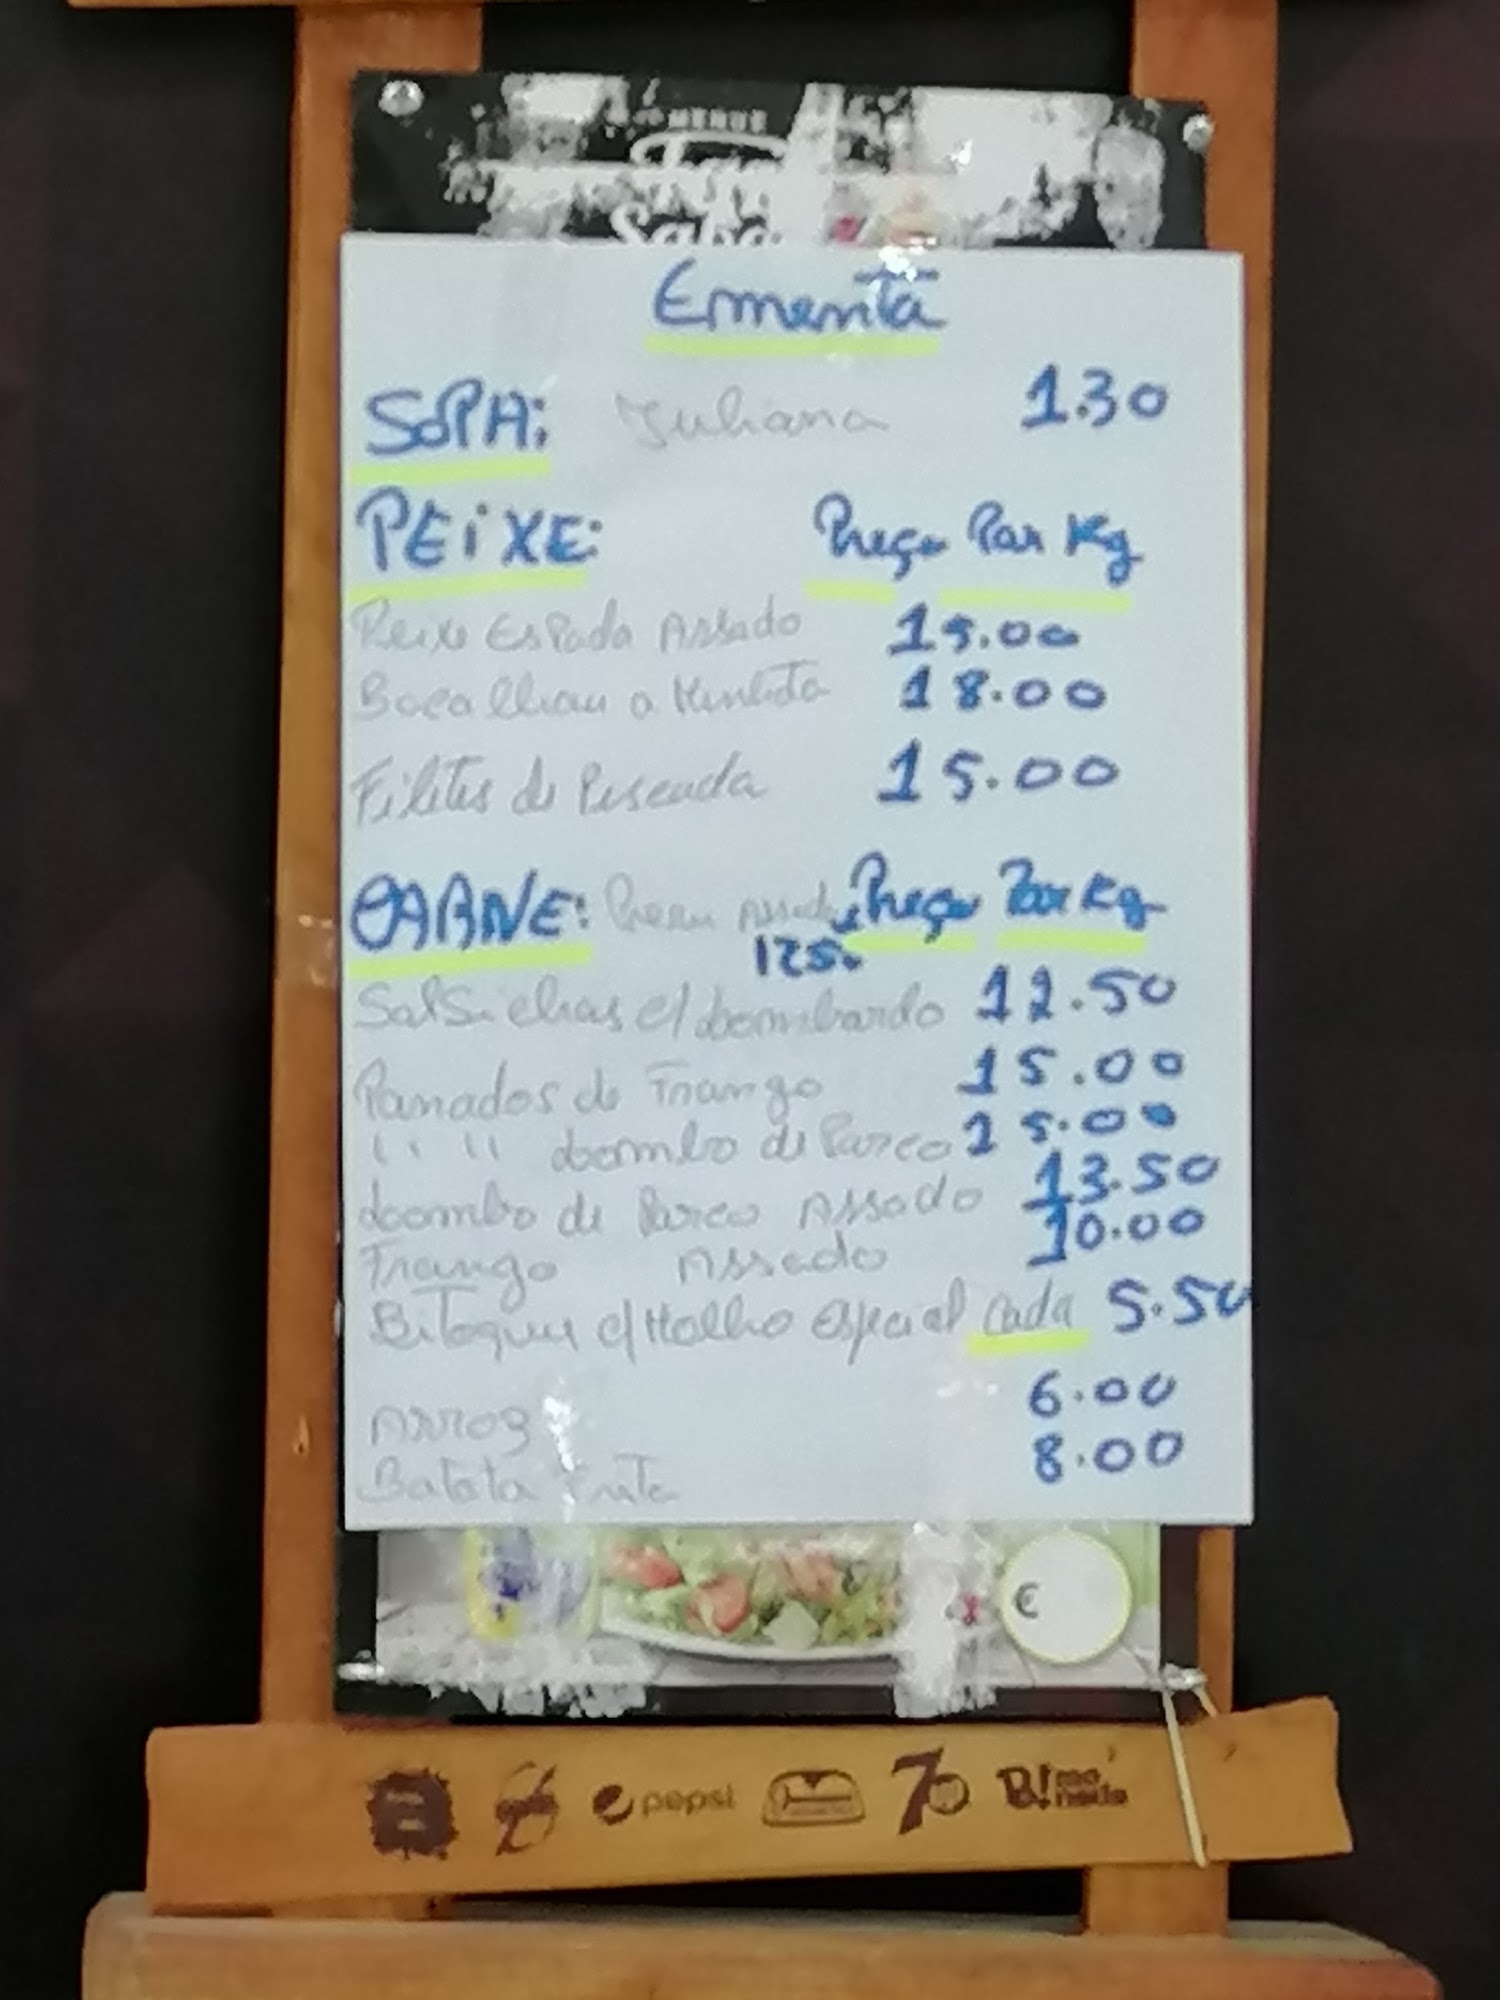 MENUS
Ementa
SOPA: Juliana 1.30
PEIXE: Preço Por Kg
Peixe Espada Assado 15.00
Bacalhau a Minhota 18.00
Filetes de Pescada 15.00
CARNE: Peru Assado Preço Por Kg
125.
Salsichas c/ Lombardo 12.50
Panados de Frango 15.00
" " Lombo de Porco 15.00
Loombo de Porco Assado 13.50
Frango Assado 10.00
Bitoques c/ Molho especial Cada 5.50
Arroz 6.00
Batata Frita 8.00
€
pepsi 7 B!